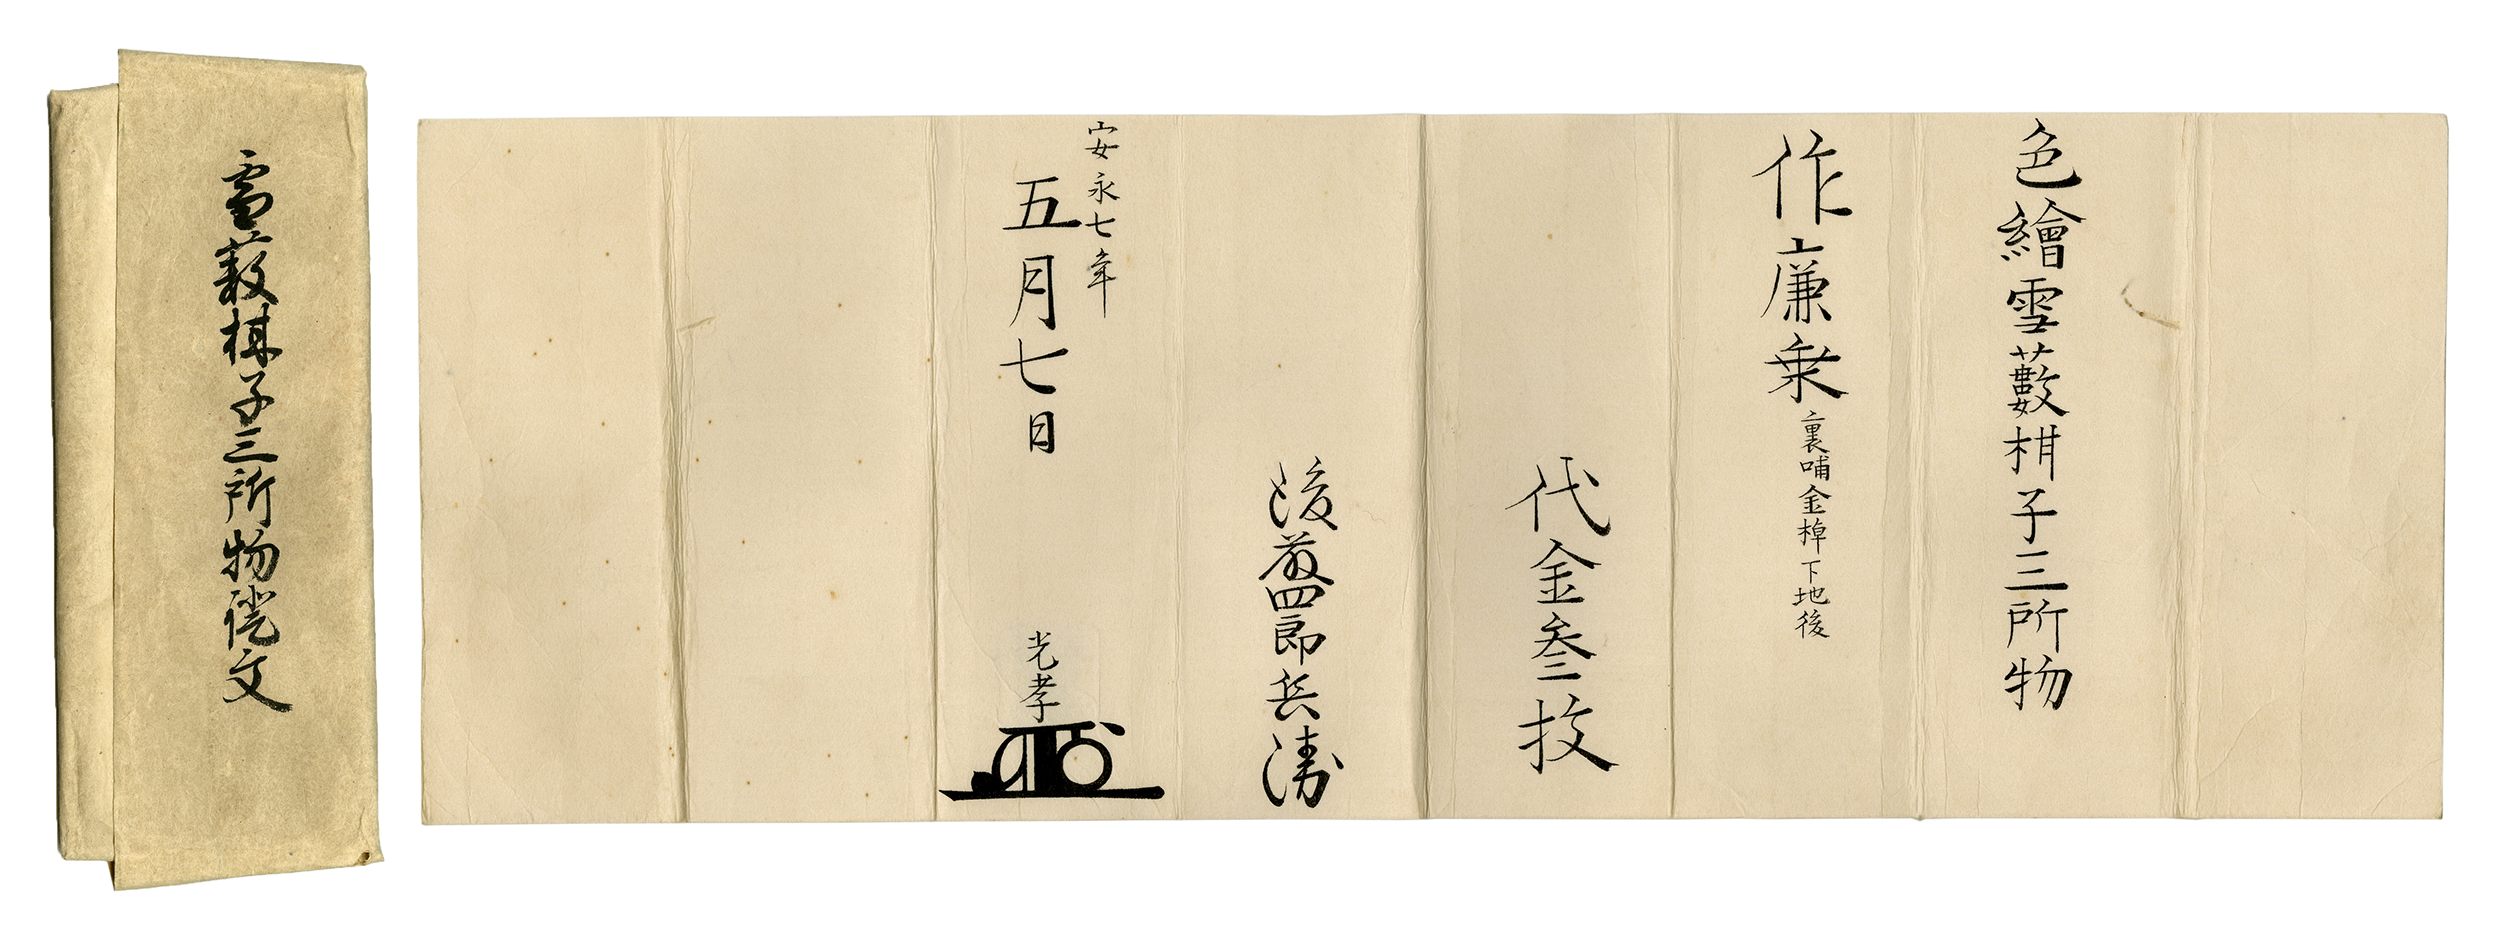 雪薮柑子三所物証文
色繪雪藪柑子三所物
作廉乗
裏哺金棹下地後
代金叁枚
後藤四郎兵衛
安永七年
五月七日
光孝